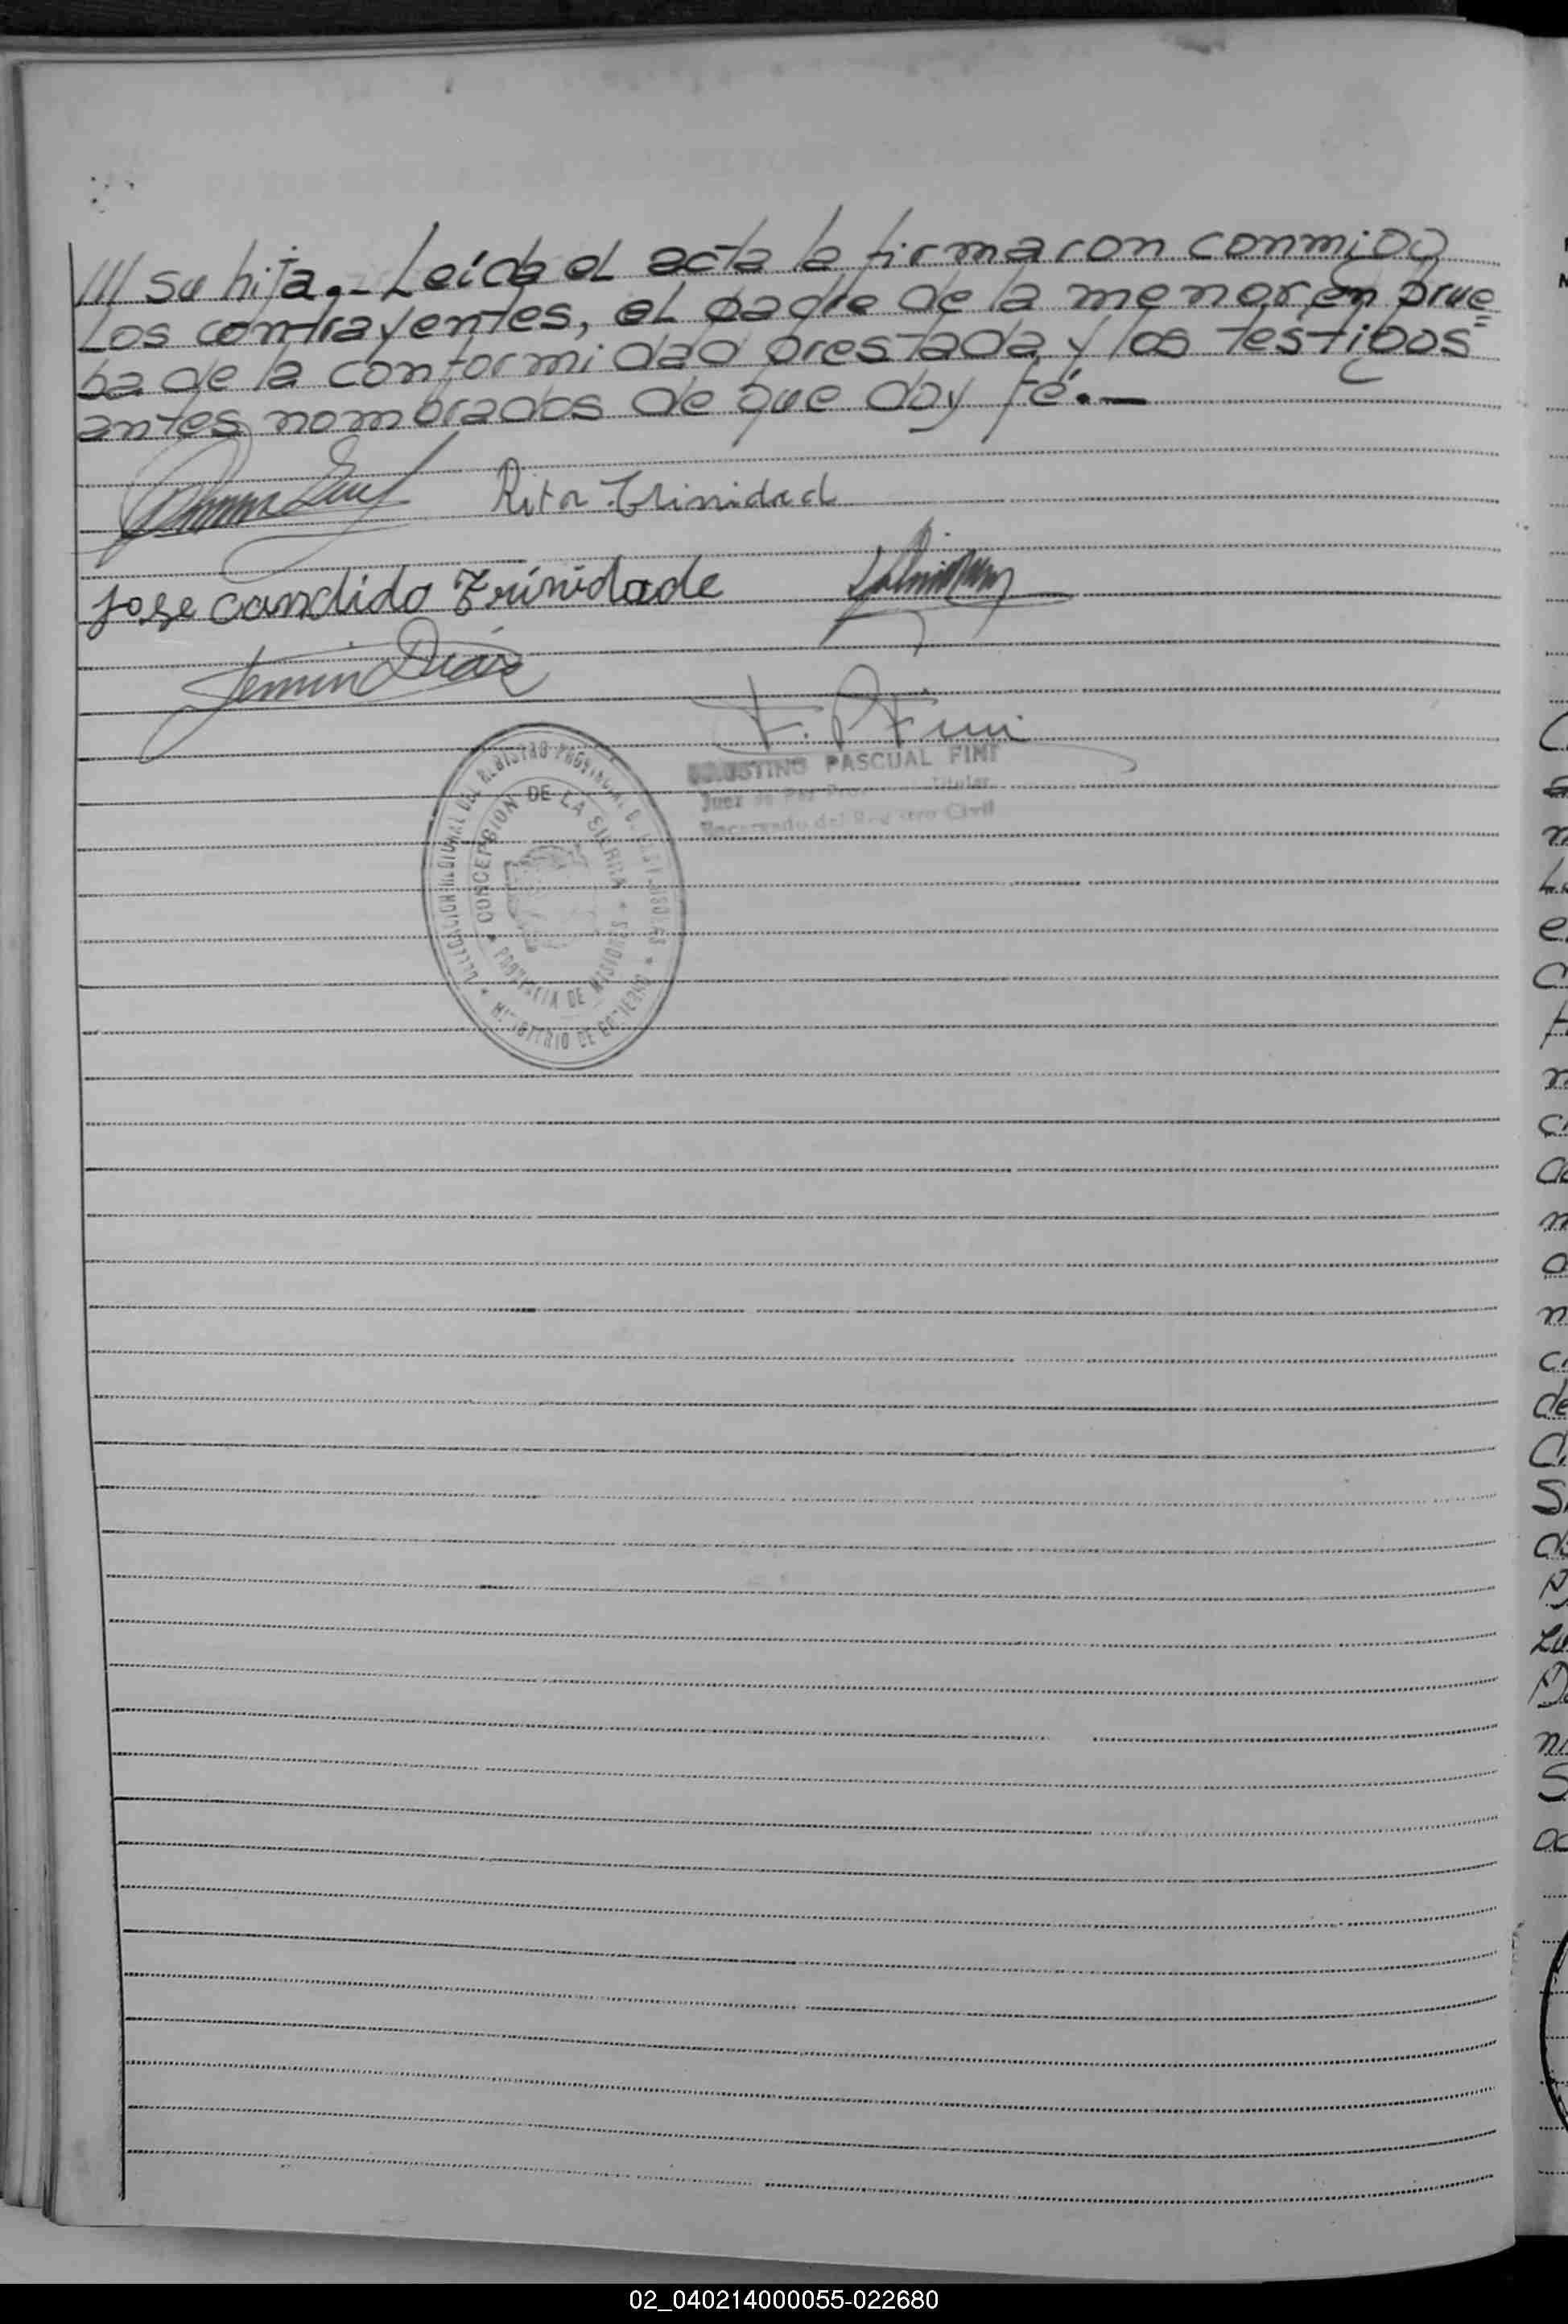 /// su hija.- Leída el acta la firmaron conmigo
Los contrayentes, el padre de la menor en prue=
ba de la conformidad prestada y los testigos
antes nombrados de que doy fé.-
Rita Trinidad
Jose Candido Trinidade
Fermin Dias
F. P. Fini
PASCUAL FINI
Juez de Paz Titular
Encargado del Registro Civil
DELEGACION REGIONAL DEL REGISTRO PROVINCIAL DE LAS PERSONAS * MINISTERIO DE GOBIERNO *
CONCEPCION DE LA SIERRA * PROVINCIA DE MISIONES *
02_040214000055-022680